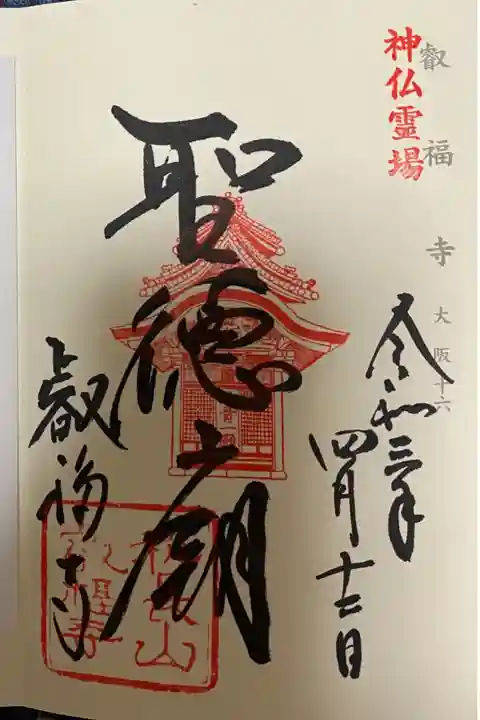 神仏霊場
叡福寺 大阪十六
令和三年
四月十二日
聖徳廟
叡福寺